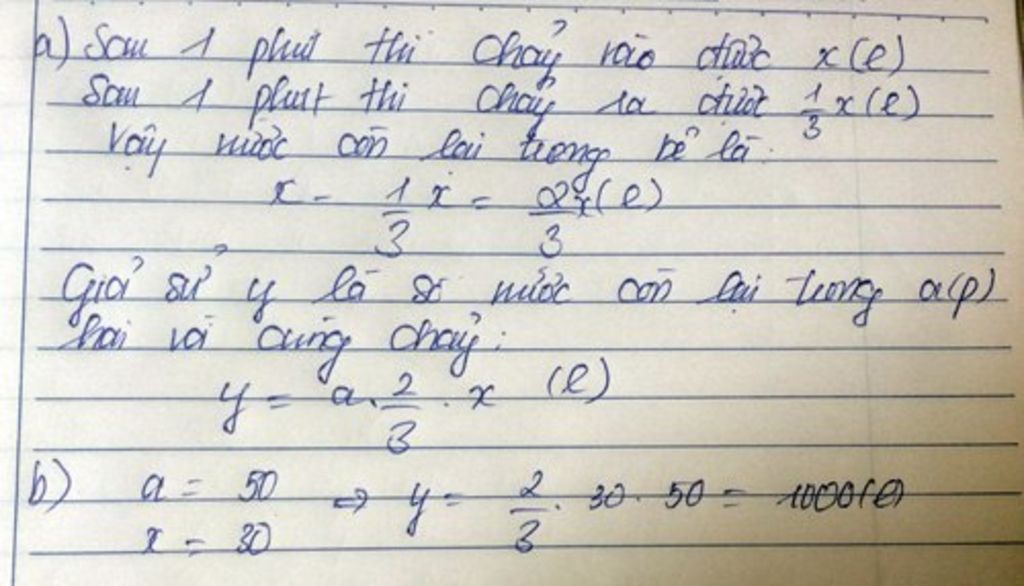 a) Sau 1 phút thì chảy vào được x(l)
Sau 1 phút thì chảy ra được 1/3 x(l)
Vậy nước còn lại trong bể là:
x - 1/3 x = 2/3 x(l)
Giả sử y là số nước còn lại trong a(p)
hai vòi cùng chảy:
y = a. 2/3 . x (l)
b) a = 50 => y = 2/3 . 30 . 50 = 1000(l)
x = 30